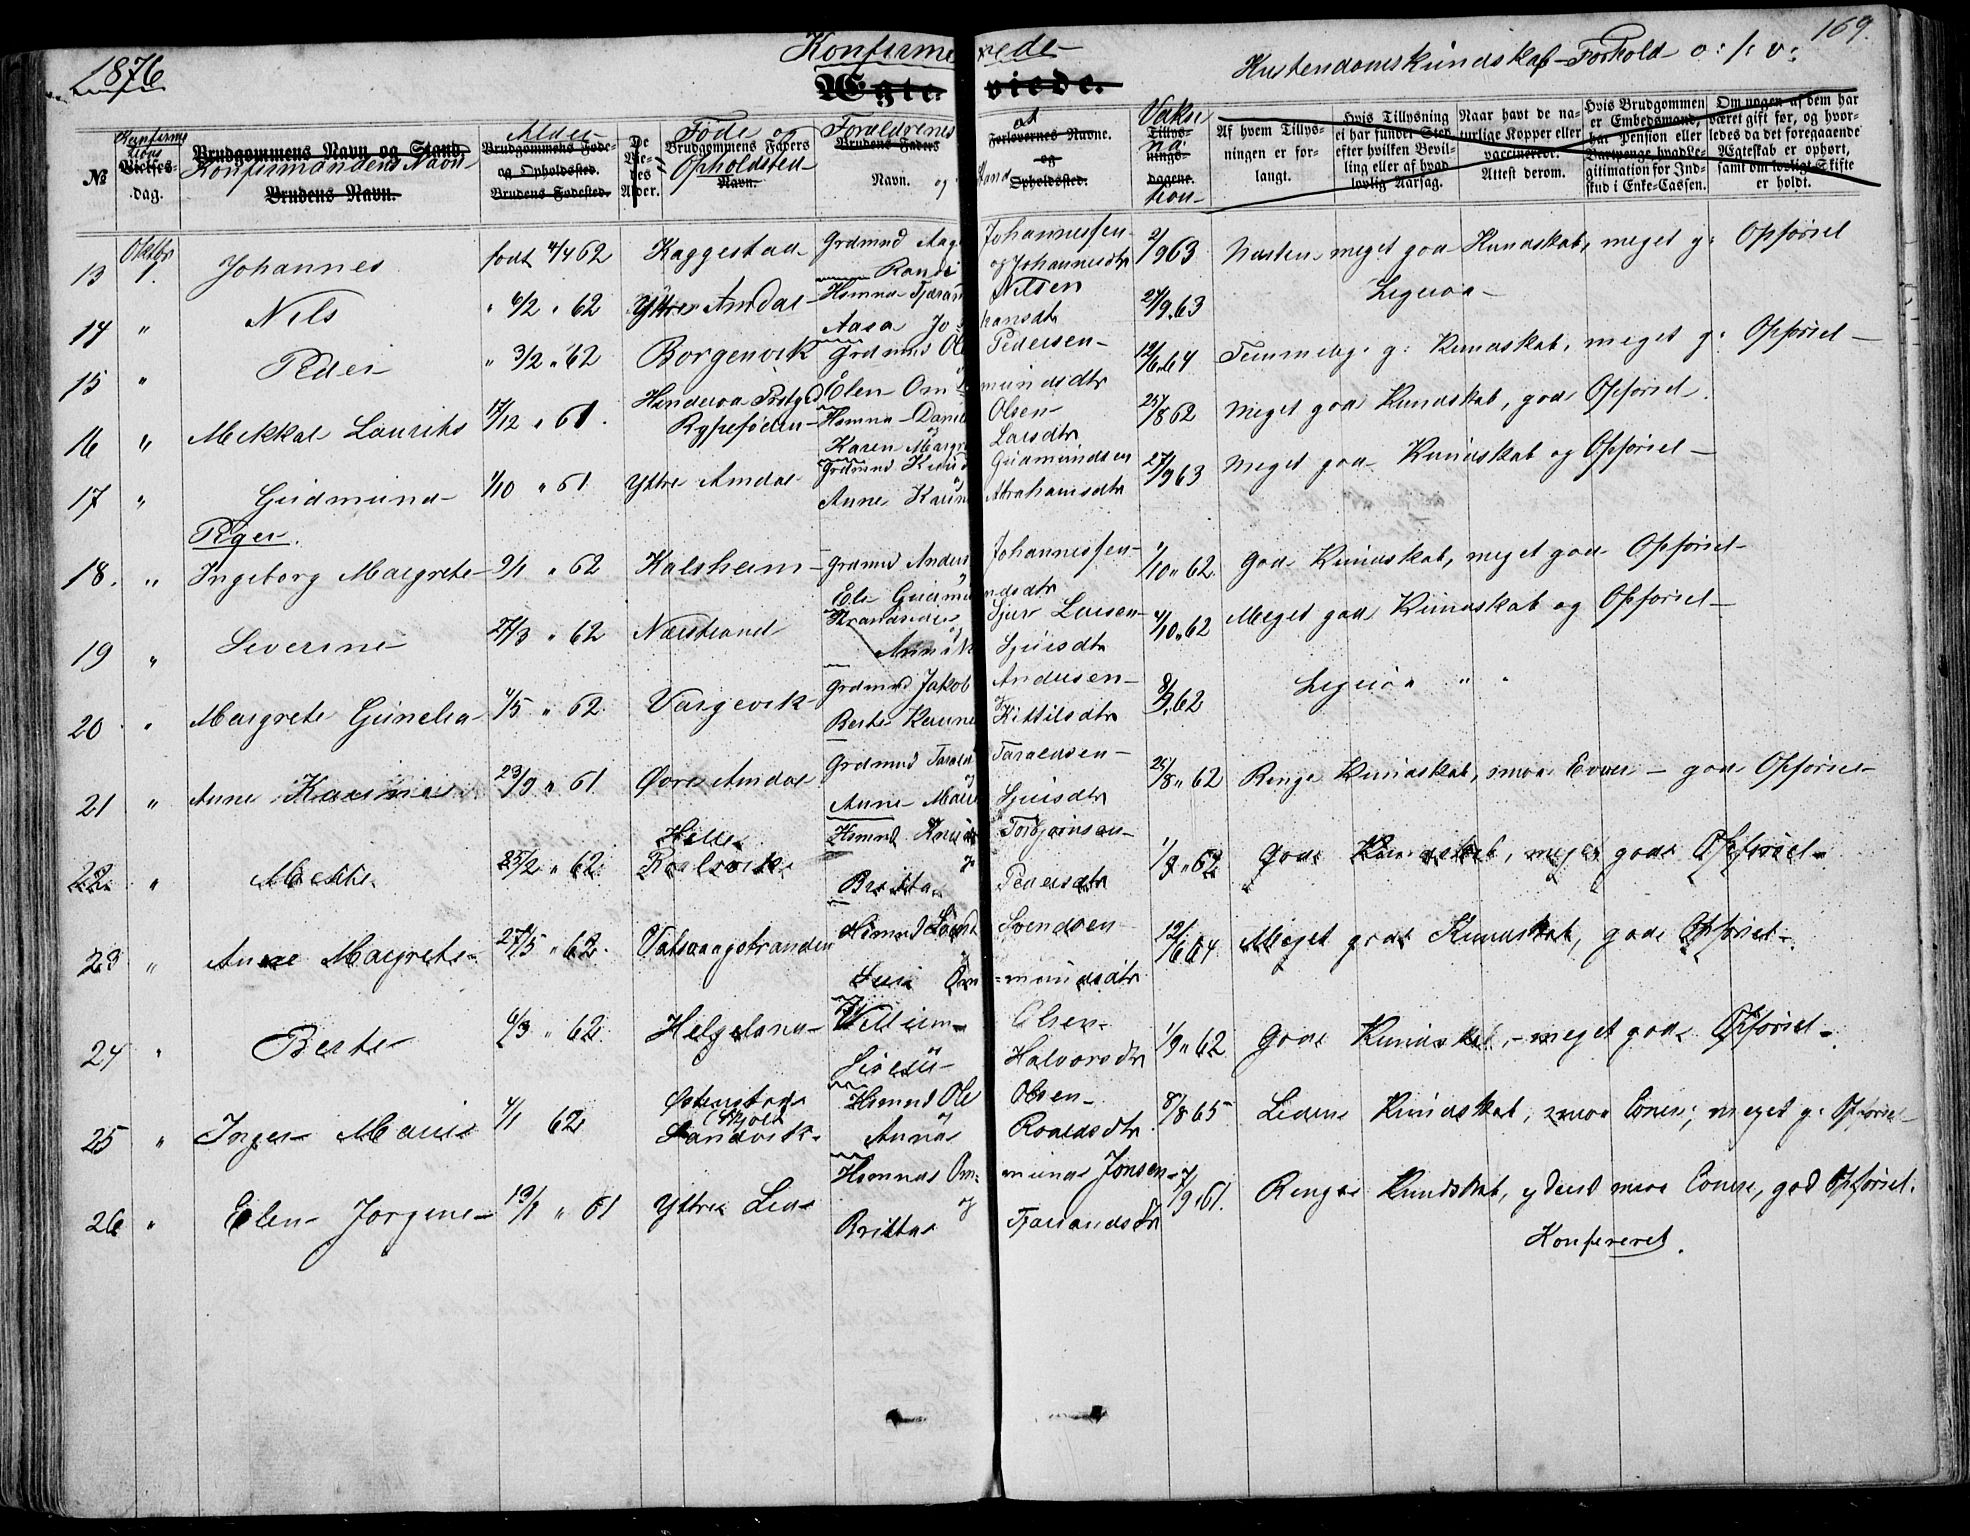 1876 Konfirmerede Kristendomskundskab Forhold o: s: v: 169.
Ægteviede.
No Konfirmations Vielses-dag. Brudgommens Navn og Stand Konfirmandens Navn Brudens Navn. Alder Brudgommens Føde- og Opholdssted. Brudens Fødested. De Viedes Alder. Føde og Brudgommens Faders Opholdssted Navn. Forældrenes Brudens Faders Navn. og Stand Forlovernes Navne. og Opholdssted. Vaksination Tillysnings-dagene. Af hvem Tillysningen er forlangt. Hvis Tillysning ei har fundet Sted efter hvilken Bevilling eller af hvad lovlig Aarsag. Naar havt de naturlige Kopper eller vaccineret. Attest derom. Hvis Brudgommen er Embedsmand, har Pension eller Vartpenge, hvad Legitimation for Indskud i Enke-Cassen. Om nogen af dem har været gift før, og hvorledes da det foregaaende Ægteskab er ophørt, samt om lovligt Skifte er holdt.
13 Oktbr 1. Johannes født 4/4 62 Kaggestad Grdmnd Aage Johannessen og Johannesdtr 2/9 63 Næsten meget god Kundskab, meget g: Opførsel
14 " Nils " 6/2 " 62 Yttre Amdal Husmnd Tjeran Nilsen Aasa Johansdtr 24/9 63 Ligesaa
15 " Peder " 3/2 " 62 Borgenvik Grdmnd Ole Pedersen Elen Omundsdtr 12/6 64 Temmelig g: Kundskab, meget g: Opførsel
16 " Mikkal Laurits 17/12 " 61. Hinderaa Prstgd Husmnd Daniel Olsen Karen Margr Larsdtr 25/8 62 Meget god Kundskab, god Opførsel
17 " Gudmund 1/10 " 61 Yttre Amdal Grdmnd Knud Gudmundsen Anne Karine Abrahamsdtr 27/9 63 Meget god Kundskab og Opførsel
Piger.
18. " Ingeborg Margrete 9/1 " 62 Kalsheim Grdmnd Anders Johannessen Eli Gudmundsdtr 1/10 " 62 God Kundskab, meget god Opførsel
19 " Severine 27/3 " 62 Nærstrand Strandsidder Sjur Larsen Anna Sjursdtr 4/10 62 Meget god Kundskab og Opførsel
20 " Margrete Gunelia 4/5 " 62. Vargevik Grdmnd Jakob Andersen Berte Karine Kittilsdtr 8/9 62 Ligesaa " "
21 " Anne Karine 23/9 " 61 Øvre Amdal Grdmnd Tarald Taraldsen Anne Marie Sjursdtr 25/8 " 62 Ringe Kundskab, smaa Evner god Opførsel
22. " Mette 25/2 " 62. Hille Roalsvik Husmnd Knud Torbjørnsen Britta Pedersdtr 1/9 " 62 God Kundskab, meget god Opførsel
23 " Anne Margrete 27/5 " 62. Vatsvaagstranden Husmnd Svend Svendsen Siri Omundsdtr 12/6 64 Meget god Kundskab, god Opførsel
24 " Berte 6/3 " 62. Helgeland Villum Olsen Halvorsdtr 1/9 " 62 God Kundskab, meget god Opførsel
25 " Inger Marie 4/1 62 (Skjold Sandvik Husmnd Ole Olsen Anna Roaldsdtr 8/8 65 Liden Kundskab, smaa Evner; meget g: Opførsel
26 " Elen Jørgine 13/1 " 61 Yttre Lea Husmnd Omund Jonsen og Britta Tjerandsdtr 7/9 61. Ringe Kundskab, yderst smaa Evner, god Opførsel.
Konfereret.